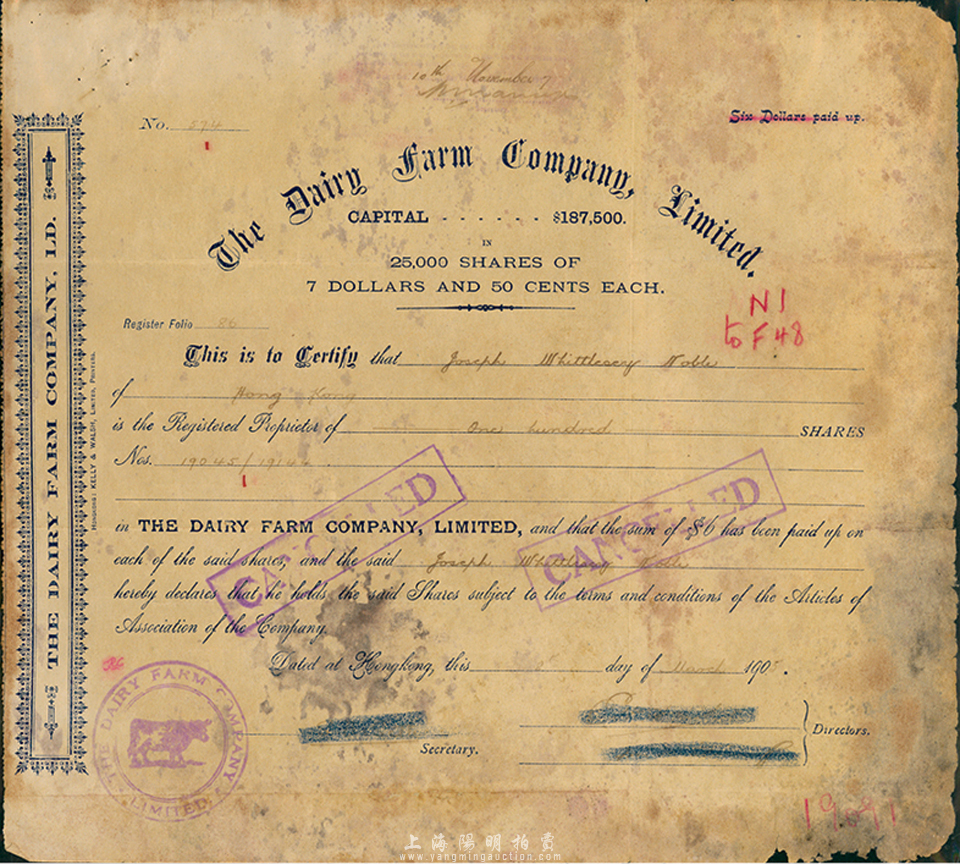 10th November
No. 574
Six Dollars paid up.
The Dairy Farm Company, Limited.
CAPITAL - - - - - - $187,500.
IN
25,000 SHARES OF
7 DOLLARS AND 50 CENTS EACH.
N1
to F48
Register Folio 86
This is to Certify that Joseph Whittlesey Noble
of Hong Kong
is the Registered Proprietor of One hundred SHARES
Nos. 19045/1914
in THE DAIRY FARM COMPANY, LIMITED, and that the sum of $6 has been paid up on
each of the said shares, and the said Joseph Whittlesey Noble
hereby declares that he holds the said Shares subject to the terms and conditions of the Articles of
Association of the Company.
Dated at Hongkong, this day of March 190
Secretary.
Directors.
CANCELLED
CANCELLED
THE DAIRY FARM COMPANY, LD.
HONGKONG: KELLY & WALSH, LIMITED, PRINTERS.
THE DAIRY FARM COMPANY LIMITED
上海陽明拍賣
www.yangmingauction.com